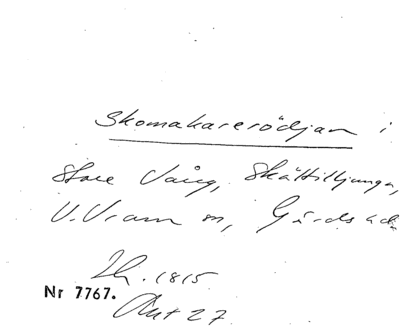 Skomakaresrödjan i
Store Vång, Skättilljunga,
V. Vram sn, Gärds hd.
1815
Nr 7767.
Akt 27